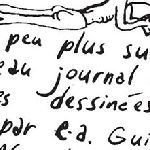 peu plus su
eau journal
es dessinées
par e.a. Gui